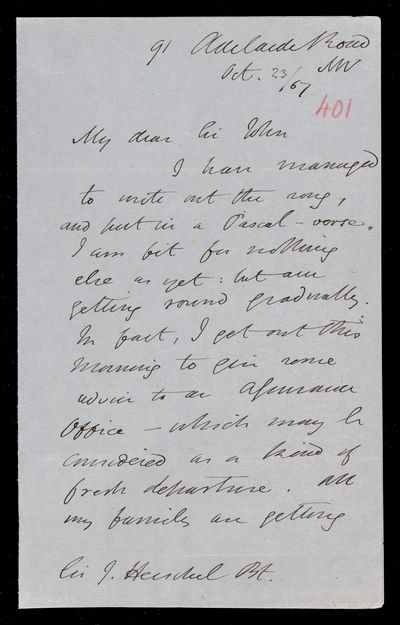 91 Adelaide Road
NW
Oct. 23/67
401
My dear Sir John
I have managed
to write out the song,
and put in a Pascal-verse.
I am fit for nothing
else as yet: but am
getting round gradually.
In fact, I get out this
morning to give some
advice to an Assurance
Office – which may be
considered as a kind of
fresh departure. All
my family are getting
Sir J. Herschel Bt.